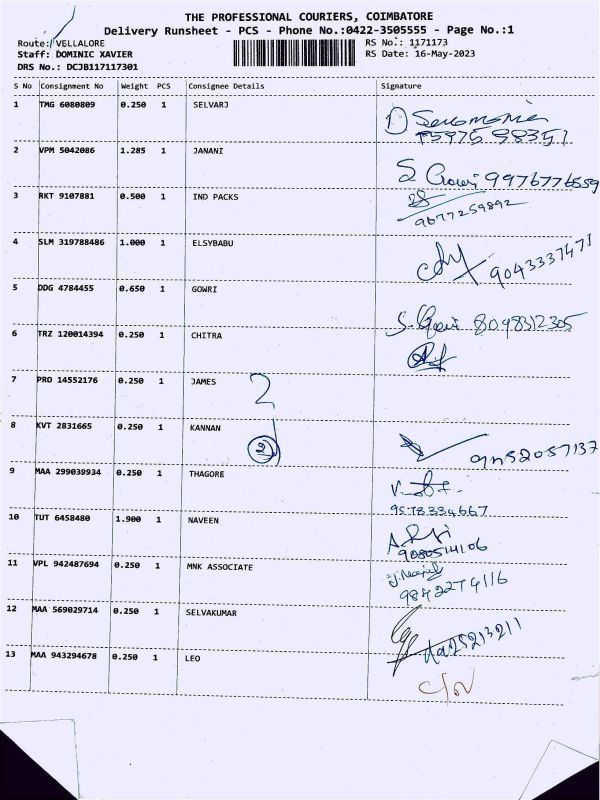 THE PROFESSIONAL COURIERS, COIMBATORE
Delivery Runsheet - PCS - Phone No.:0422-3505555 - Page No.:1
Route: VELLALORE
RS No.: 1171173
Staff: DOMINIC XAVIER
RS Date: 16-May-2023
DRS No.: DCJB117117301
S No Consignment No Weight PCS Consignee Details Signature
1 TMG 6080809 0.250 1 SELVARJ
2 VPM 5042086 1.285 1 JANANI
S. Gowri 9976776559
3 RKT 9107881 0.500 1 IND PACKS
9677259892
4 SLM 319788486 1.000 1 ELSYBABU
9043337471
5 DDG 4784455 0.650 1 GOWRI
S. Gowri 8098312305
6 TRZ 120014394 0.250 1 CHITRA
7 PRO 14552176 0.250 1 JAMES
2
8 KVT 2831665 0.250 1 KANNAN
2
9 MAA 299039934 0.250 1 THAGORE
9578334667
10 TUT 6458480 1.900 1 NAVEEN
9080514106
11 VPL 942487694 0.250 1 MNK ASSOCIATE
9842274116
12 MAA 569029714 0.250 1 SELVAKUMAR
13 MAA 943294678 0.250 1 LEO